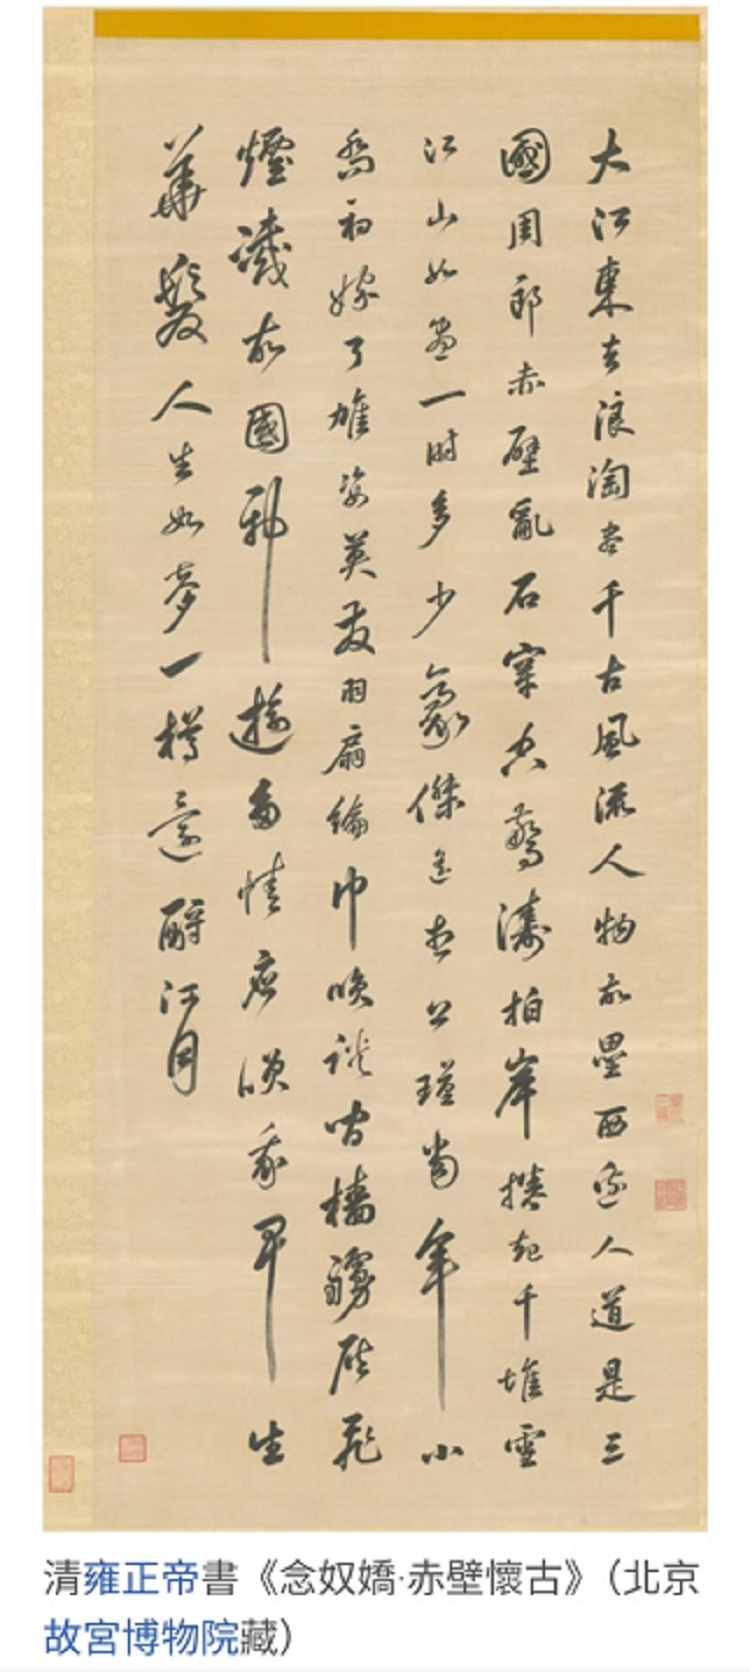 大江東去浪淘盡千古風流人物故壘西邊人道是三
國周郎赤壁亂石穿空驚濤拍岸捲起千堆雪
江山如畫一時多少豪傑遙想公瑾當年小
喬初嫁了雄姿英發羽扇綸巾咲談間檣艣灰飛
煙滅故國神遊多情應咲我早生
華髮人生如夢一樽還酹江月
清雍正帝書《念奴嬌·赤壁懷古》（北京
故宮博物院藏）